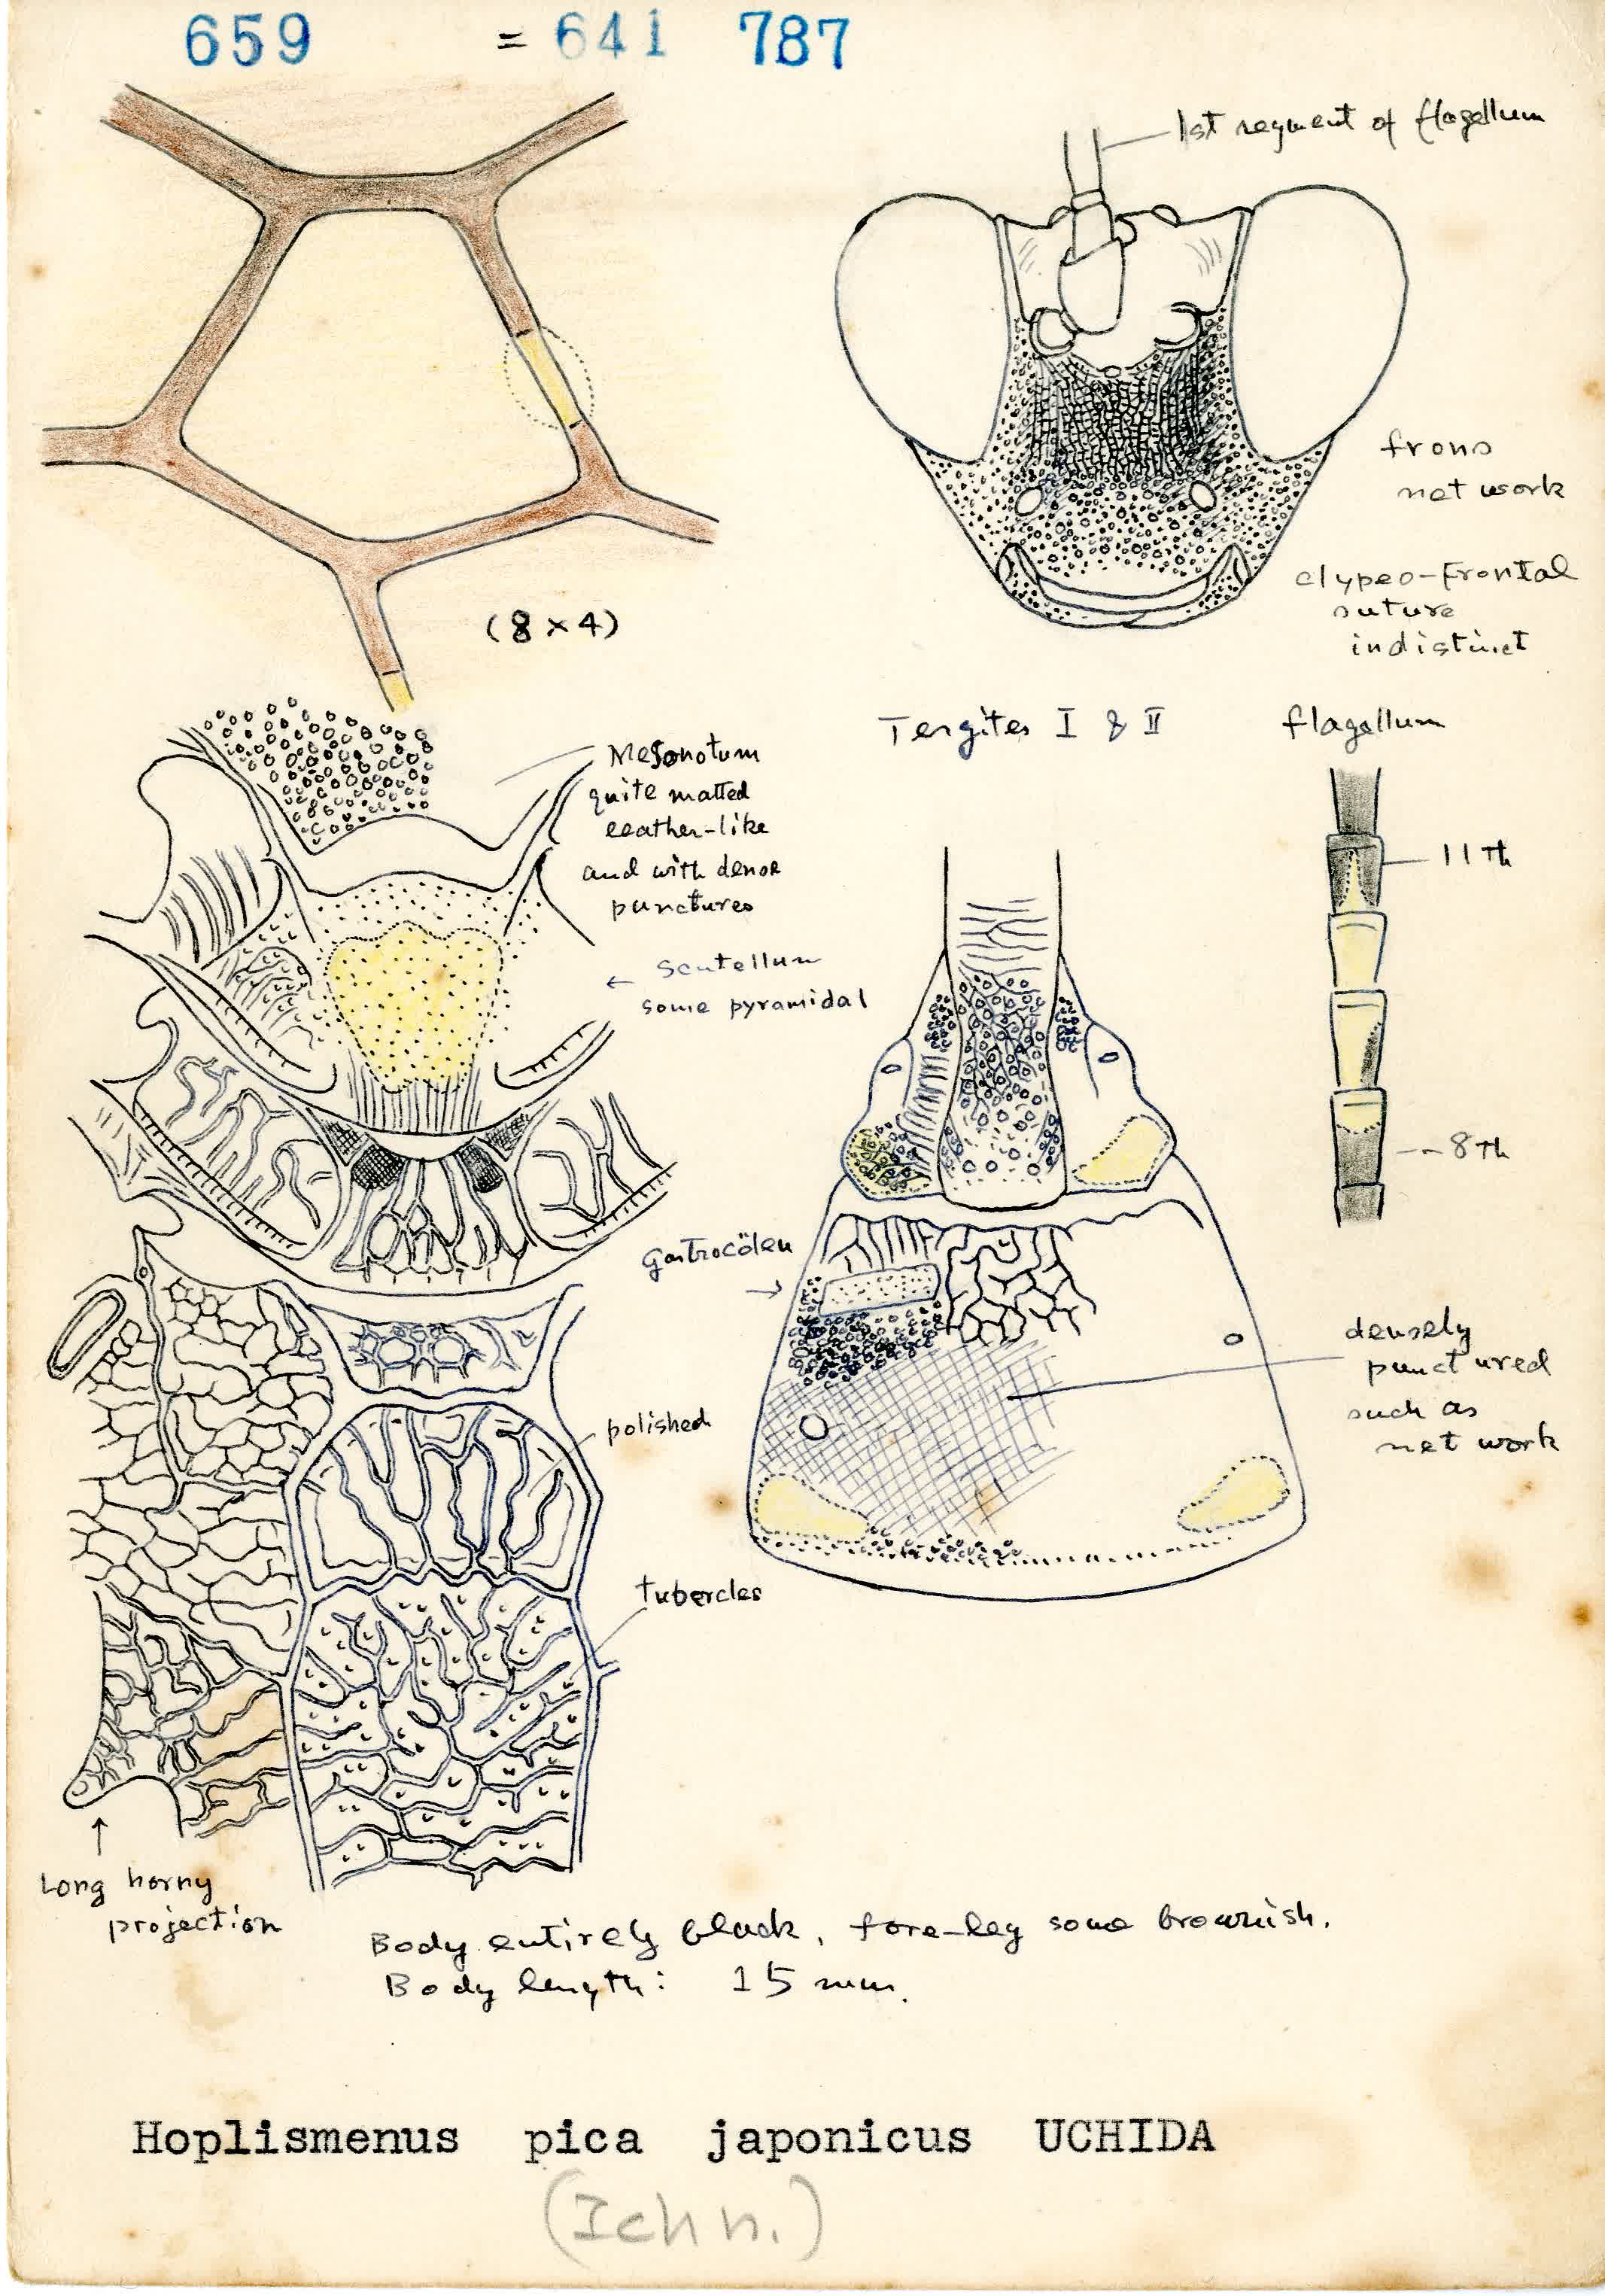 659 = 641 787
1st segment of flagellum
frons
net work
clypeo-frontal
suture
indistinct
(8 x 4)
Tergites I & II
flagellum
Mesonotum
quite matted
leather-like
and with dense
punctures
11 th
← scutellum
some pyramidal
8 th
Gastrocölen
→
densely
punctured
such as
net work
polished
tubercles
↑
Long horny
projection
Body entirely black, fore-leg some brownish.
Body length: 15 mm.
Hoplismenus pica japonicus UCHIDA
(Ichn.)